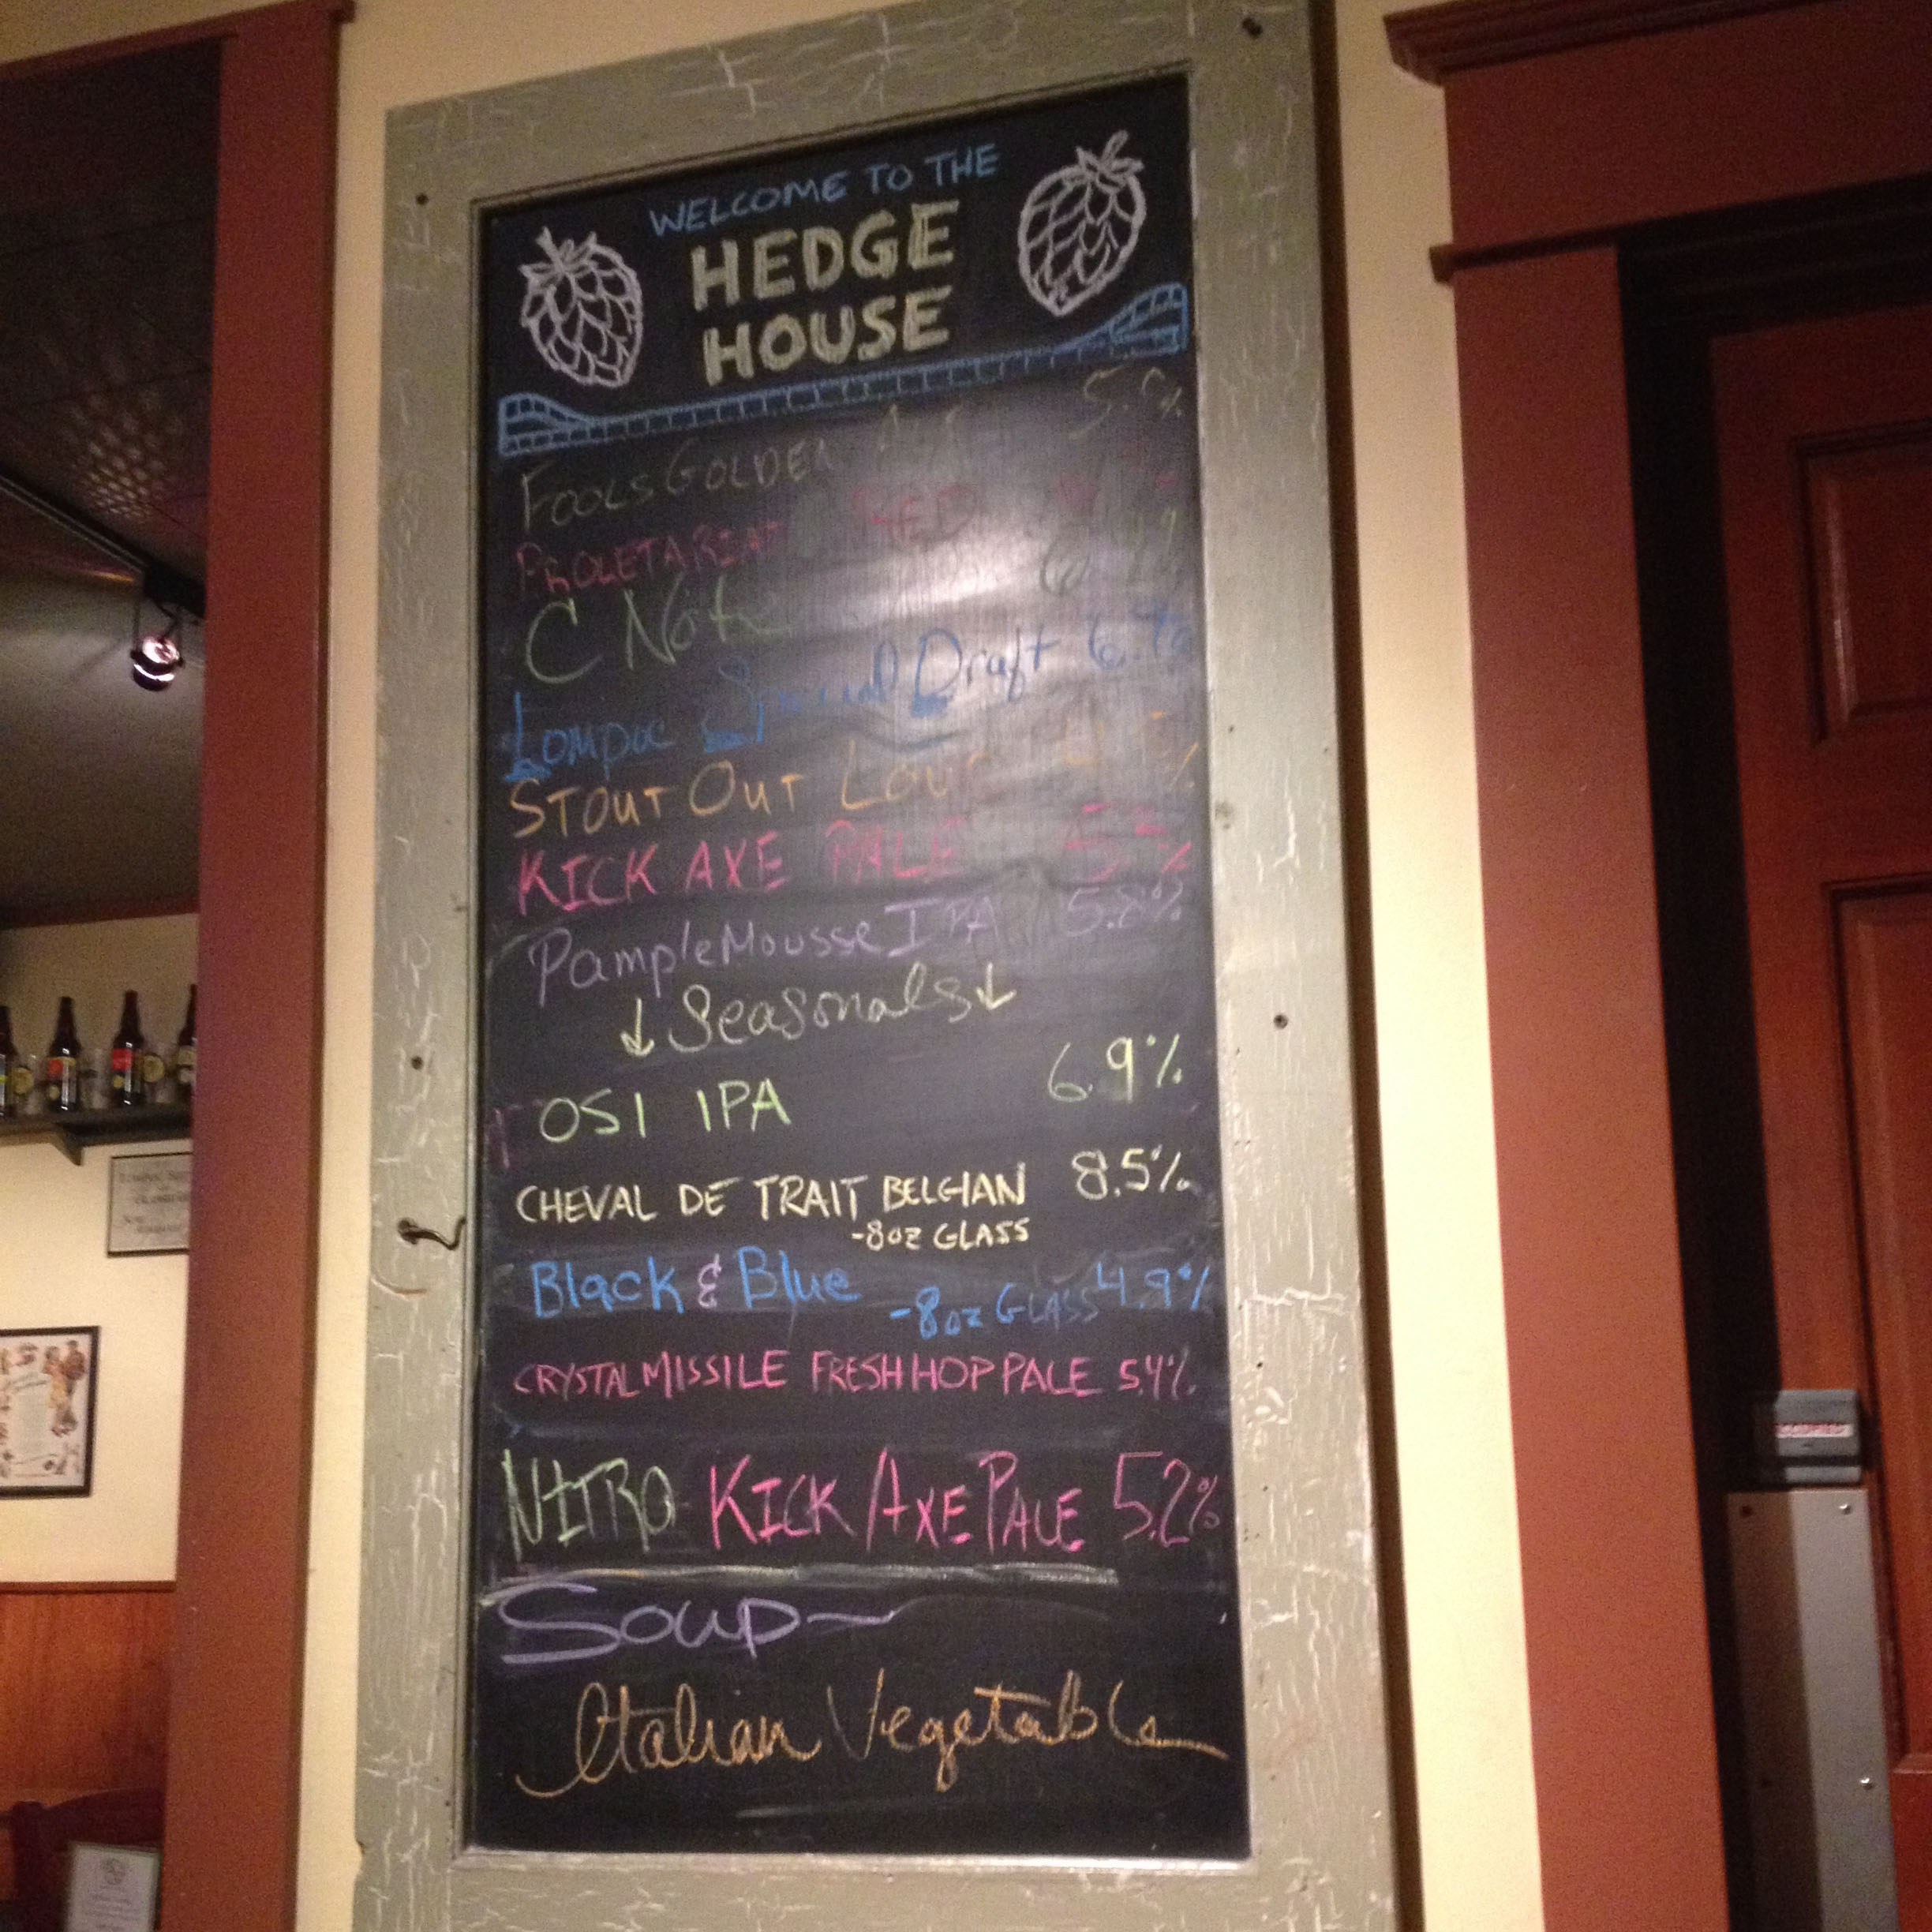 WELCOME TO THE
HEDGE
HOUSE
FOOLS GOLDEN
PROLETARIAT RED
C Note
Lompoc Special Draft
STOUT OUT LOUD
KICK AXE PALE 5.2%
PampleMousse IPA 5.8%
↓ Seasonals ↓
OSI IPA 6.9%
CHEVAL DE TRAIT BELGIAN 8.5%
-8oz GLASS
Black & Blue 4.9%
-8oz GLASS
CRYSTAL MISSILE FRESH HOP PALE 5.4%
NITRO KICK AXE PALE 5.2%
Soup~
Italian Vegetable